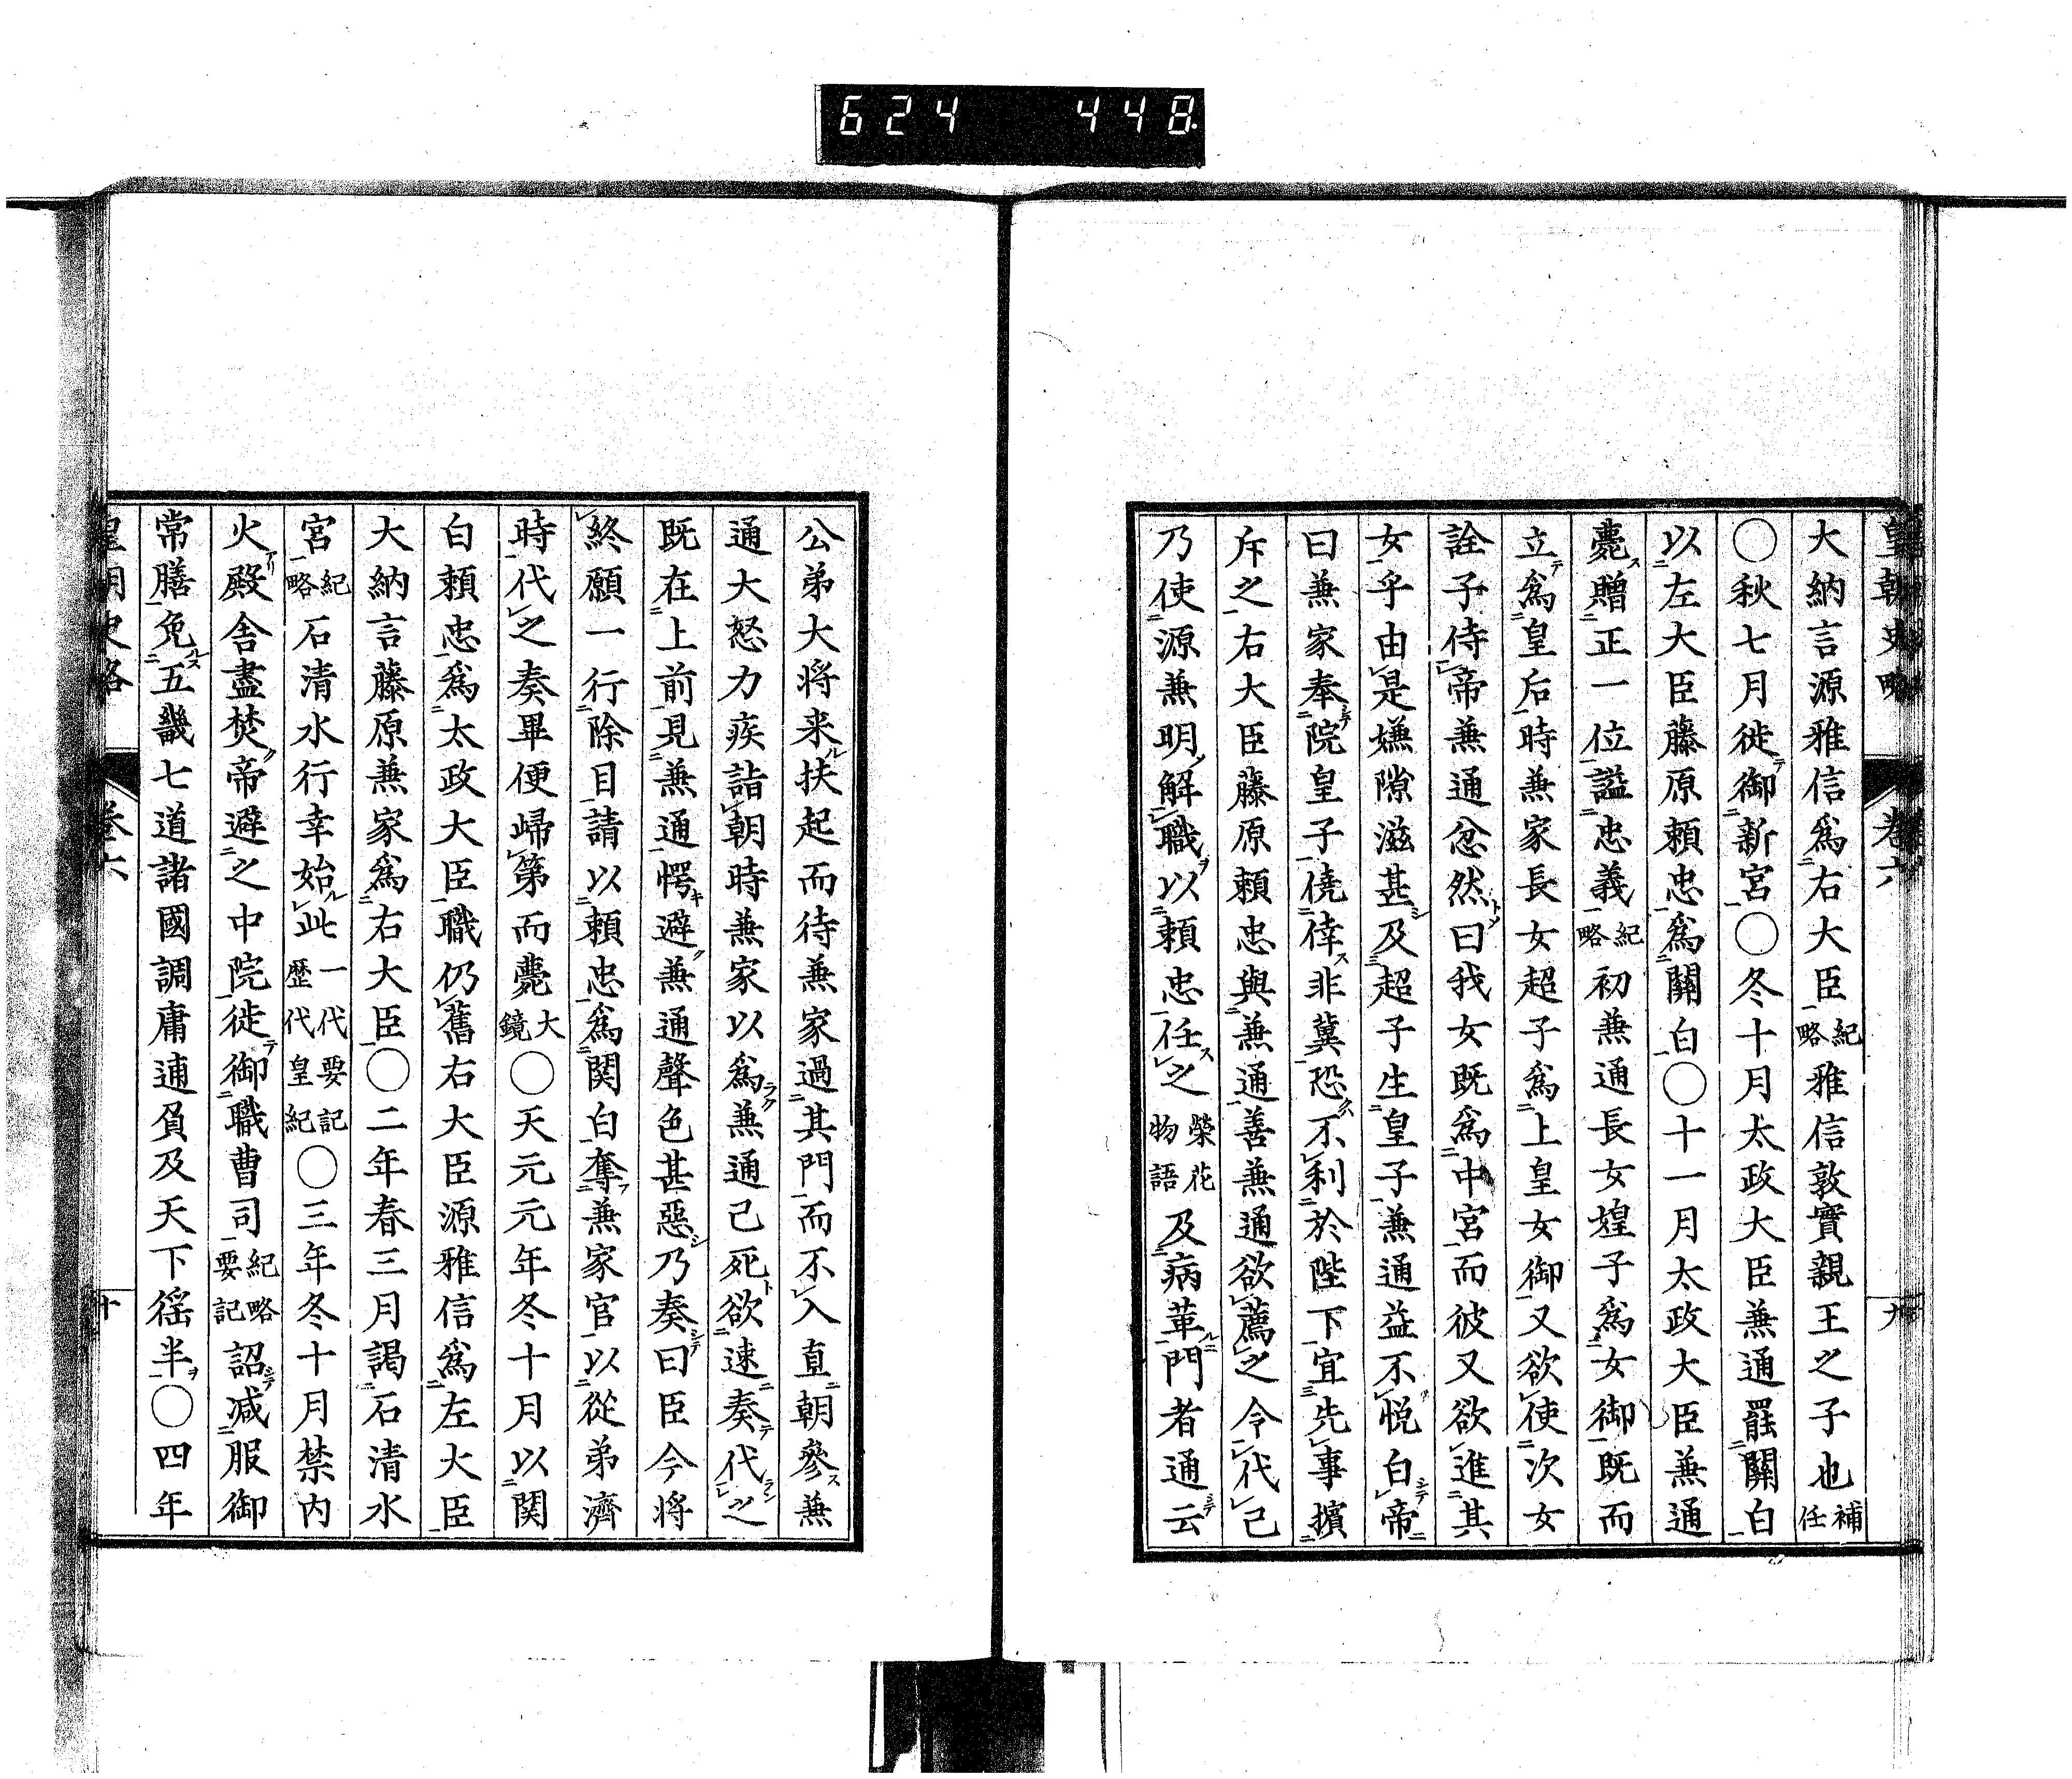 624 448
皇朝史略 卷六 九
大納言源雅信爲右大臣紀略雅信敦實親王之子也補任
〇秋七月徙御新宮〇冬十月太政大臣兼通罷關白
以左大臣藤原頼忠爲關白〇十一月太政大臣兼通
薨贈正一位謚忠義紀略初兼通長女媓子爲女御既而
立爲皇后時兼家長女超子爲上皇女御又欲使次女
詮子侍帝兼通忿然曰我女既爲中宮而彼又欲進其
女乎由是嫌隙滋甚及超子生皇子兼通益不悦白帝
曰兼家奉院皇子僥倖非冀恐不利於陛下宜先事擯
斥之右大臣藤原頼忠與兼通善兼通欲薦之令代己
乃使源兼明解職以頼忠任之榮花物語及病革門者通云
公弟大将来扶起而待兼家過其門而不入直朝參兼
通大怒力疾詣朝時兼家以爲兼通已死欲速奏代之
既在上前見兼通愕避兼通聲色甚惡乃奏曰臣今将
終願一行除目請以頼忠爲関白奪兼家官以從弟濟
時代之奏畢便歸第而薨大鏡〇天元元年冬十月以関
白頼忠爲太政大臣職仍舊右大臣源雅信爲左大臣
大納言藤原兼家爲右大臣〇二年春三月謁石清水
宮紀略石清水行幸始此一代要記歴代皇紀〇三年冬十月禁内
火殿舎盡焚帝避之中院徙御職曹司紀略要記詔减服御
常膳免五畿七道諸國調庸逋負及天下徭半〇四年
皇朝史略 卷六 十